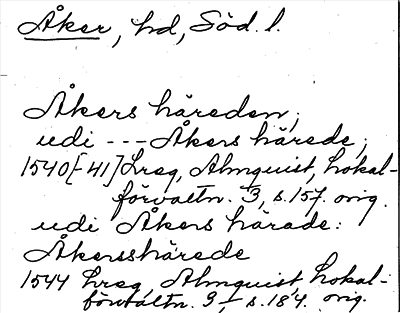 Åker, hd, Söd. l.
Åkers häreden;
udi --- Åkers härede;
1540[-41] Lreg, Almquist, Lokal-
förvaltn. 3, s. 157. orig.
udi Åkers härade:
Åkersshärede
1544 Lreg, Almquist, Lokal-
förvaltn. s. 184. orig.